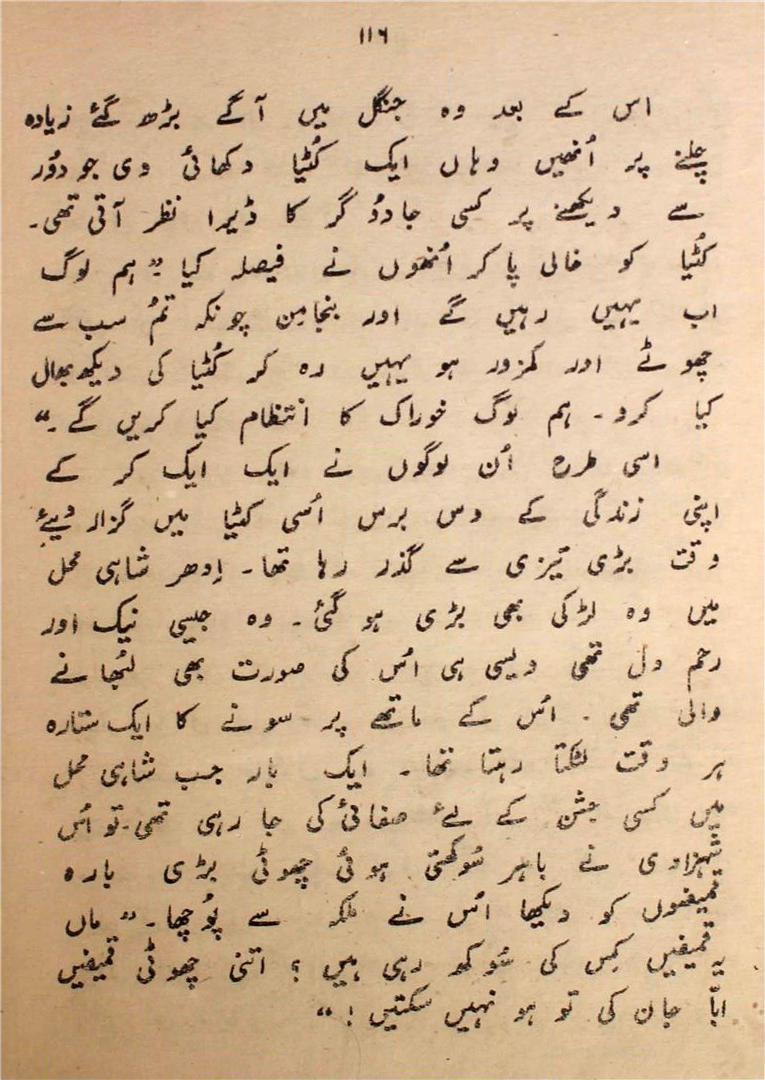 ۱۱۶
اس کے بعد وہ جنگل میں آگے بڑھ گئے زیادہ
چلنے پر اُنھیں وہاں ایک کُٹیا دکھائی دی جو دوُر
سے دیکھنے پر کسی جادوُ گر کا ڈیرا نظر آتی تھی۔
کُٹیا کو خالی پا کر اُنھوں نے فیصلہ کیا ”ہم لوگ
اب یہیں رہیں گے اور بنجامن چونکہ تمُ سب سے
چھوٹے اور کمزور ہو یہیں رہ کر کُٹیا کی دیکھ بھال
کیا کرو۔ ہم لوگ خوراک کا انتظام کیا کریں گے۔“
اسی طرح اُن لوگوں نے ایک ایک کر کے
اپنی زندگی کے دس برس اُسی کٹیا میں گزار دیئے
وقت بڑی تیزی سے گذر رہا تھا۔ اِدھر شاہی محل
میں وہ لڑکی بھی بڑی ہو گئی۔ وہ جیسی نیک اور
رحم دل تھی ویسی ہی اُس کی صورت بھی لبُھانے
والی تھی۔ اُس کے ماتھے پر سونے کا ایک ستارہ
ہر وقت لٹکتا رہتا تھا۔ ایک بار جب شاہی محل
میں کسی جشن کے لئے صفائی کی جا رہی تھی۔ تو اُس
شہزادی نے باہر سُوکھتی ہوئی چھوٹی بڑی بارہ
قمیضوں کو دیکھا اُس نے ملکہ سے پوُچھا۔ ”ماں
یہ قمیضیں کِس کی سُوکھ رہی ہیں؟ اتنی چھوٹی قمیضیں
ابّا جان کی تو ہو نہیں سکتیں!“